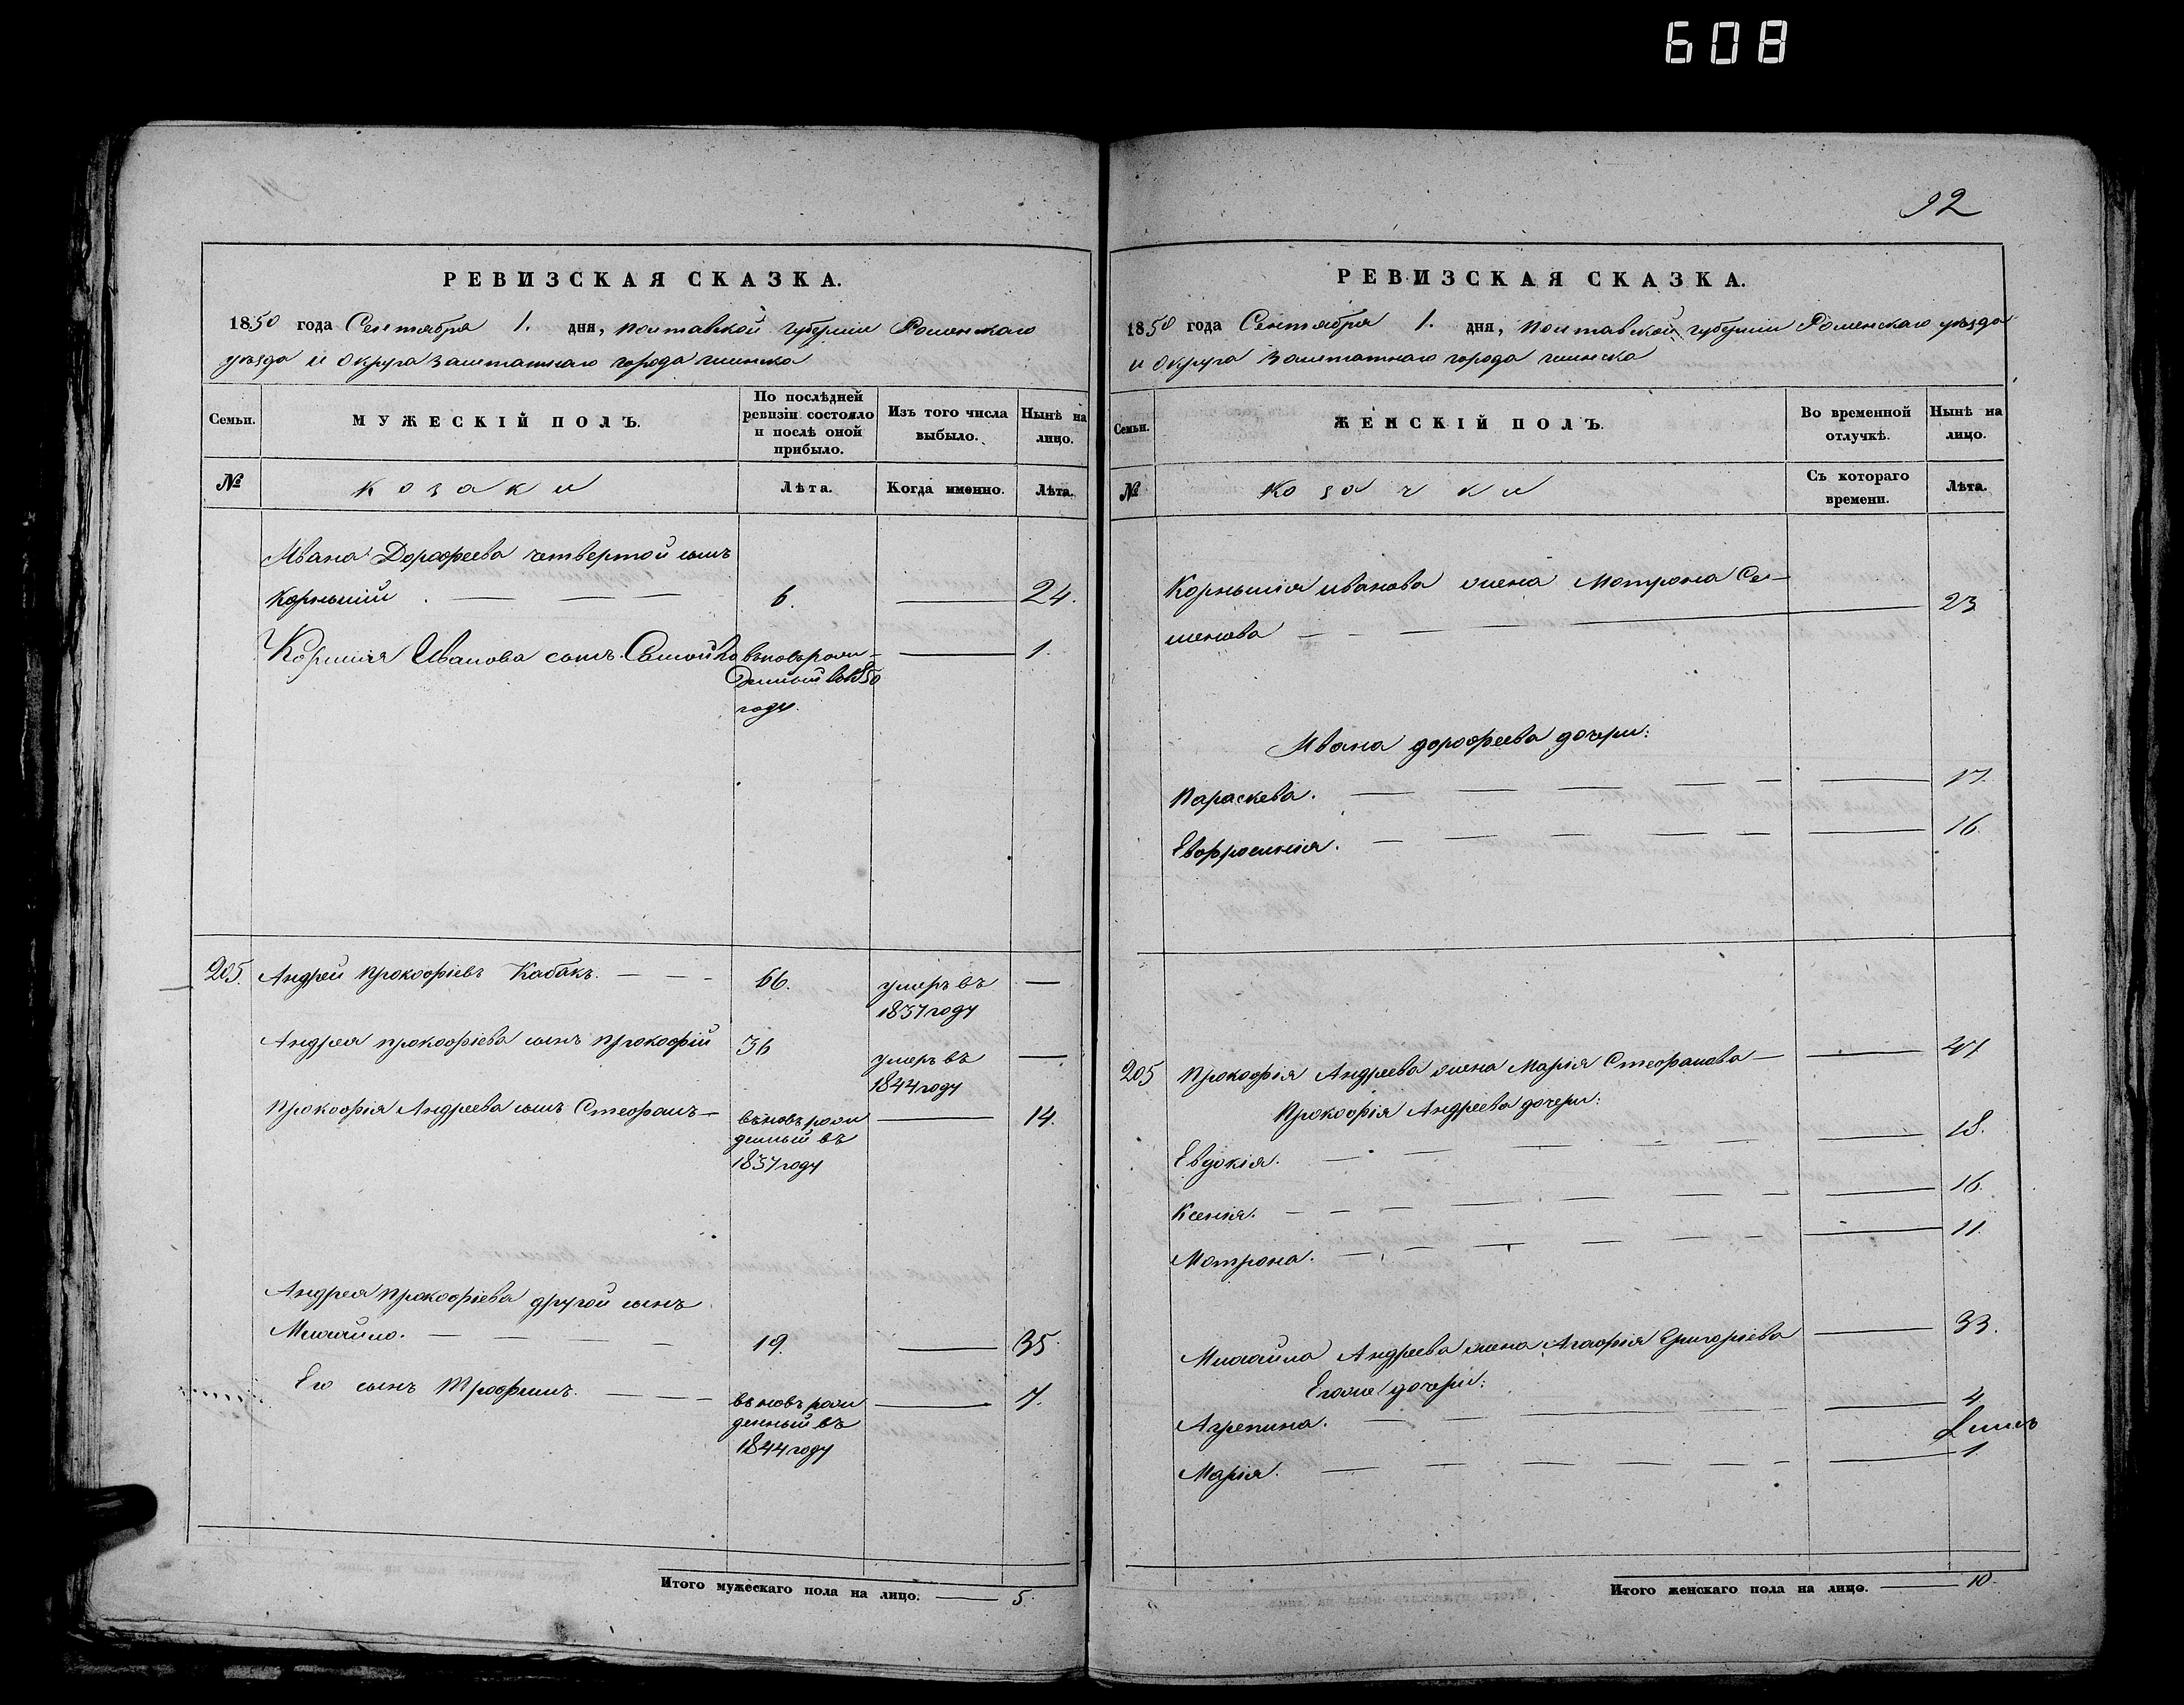 608
92
РЕВИЗСКАЯ СКАЗКА.
1850 года Сентября 1. дня, Полтавской губернии Роменскаго
уѣзда и округа заштатнаго города глинска
Семьи.
МУЖЕСКІЙ ПОЛЪ.
По послѣдней
ревизіи состояло
и послѣ оной
прибыло.
Изъ того числа
выбыло.
Нынѣ на
лицо.
№
козаки
Лѣта.
Когда именно.
Лѣта.
Ивана Дорофеева четвертой сынъ
Корнилий 6. 24.
Корнилия Иванова сынъ Самойло вьновь рож- 1.
денный в 1850
году.
205. Андрей Прокофіевъ Кабакъ. 66. умеръ въ
1837 году
Андрея прокофіева сынъ прокофій 36 умеръ въ
1844 году
Прокофія Андреева сынъ Стефанъ вьновь рож 14.
денный въ
1837 году
Андрея Прокофіева другой сынъ
Михайло. 19. 35.
Его сынъ Трофимъ. вьновь рож 7.
денный въ
1844 году
Итого мужескаго пола на лицо. 5.
РЕВИЗСКАЯ СКАЗКА.
1850 года Сентября 1. дня, Полтавской губерніи Роменскаго уѣзда
и округа заштатнаго города глинска
Семьи.
ЖЕНСКІЙ ПОЛЪ.
Во временной
отлучкѣ.
Нынѣ на
лицо.
№
козачки
Съ котораго
времени.
Лѣта.
Корнылія иванова жена Мотрона Се-
менова 23
Ивана дорофеева дочери:
Параскева. 17.
Евфросинія. 16.
205 Прокофія Андреева жена Марія Стефанова 47
Прокофія Андреева дочери:
Евдокія. 18.
Ксенія. 16.
Мотрона. 11.
Михайла Андреева жена Агафія Григоріева 33.
Егоже дочери:
Агрепина. 4
Марія. 1.
Итого женскаго пола на лицо. 10.